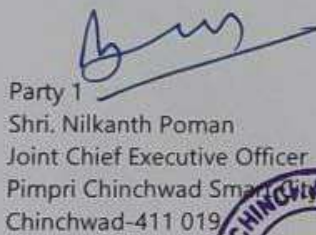 Party 1
Shri. Nilkanth Poman
Joint Chief Executive Officer
Pimpri Chinchwad Smart City
Chinchwad-411 019